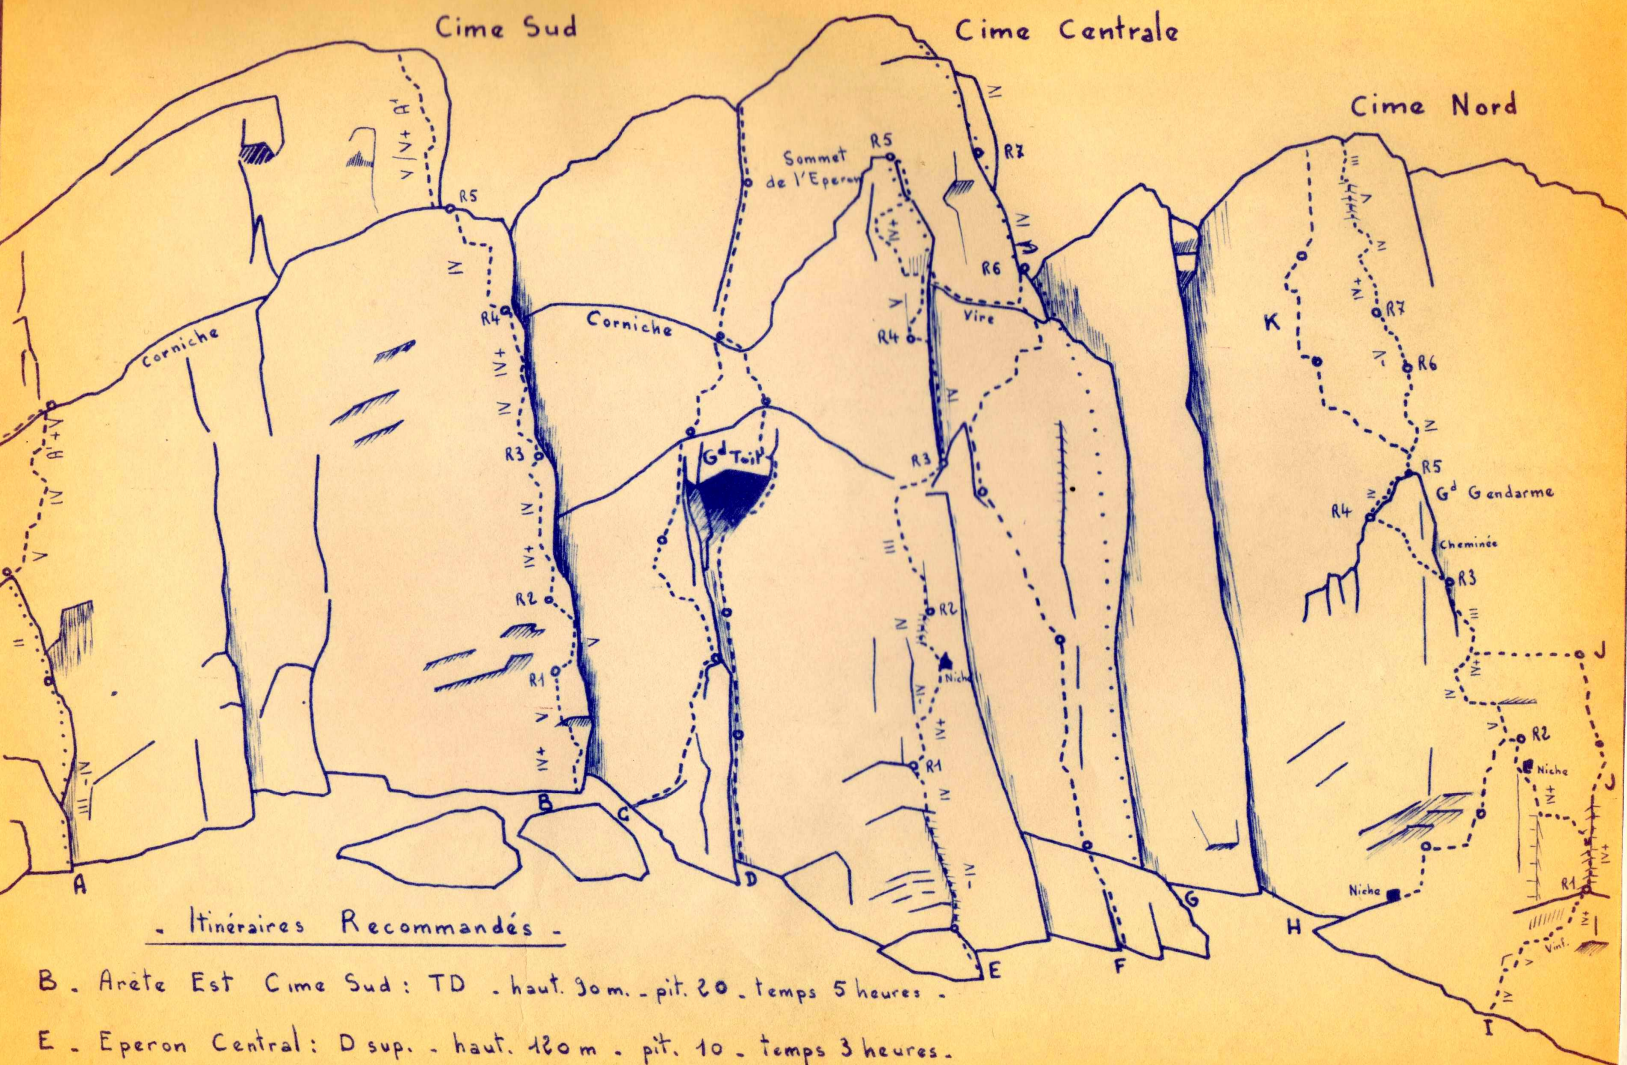 Cime Sud
Cime Centrale
Cime Nord
V/V+/A1
R5
IV
R4
IV+
IV
R3
IV
IV+
R2
V
R1
V
IV+
B
Corniche
A1
V+
IV
V
II
IV-
III
A
Corniche
Gd Toit
C
D
Sommet
de l'Eperon
R5
IV+
V
R4
IV
R7
IV
A1
R6
Vire
IV
R3
III
R2
IV
Niche
IV-
IV+
R1
IV
IV-
E
F
G
H
K
III
V
IV
IV+
R7
V-
R6
IV
R5
Gd Gendarme
IV
R4
Cheminée
R3
III
IV+
IV
J
V
R2
Niche
IV+
IV+
R1
Niche
IV+
V inf.
V
IV
I
- Itinéraires Recommandés -
B - Arète Est Cime Sud : TD - haut. 90 m. - pit. 20 - temps 5 heures -
E - Eperon Central : D sup. - haut. 120 m - pit. 10 - temps 3 heures -